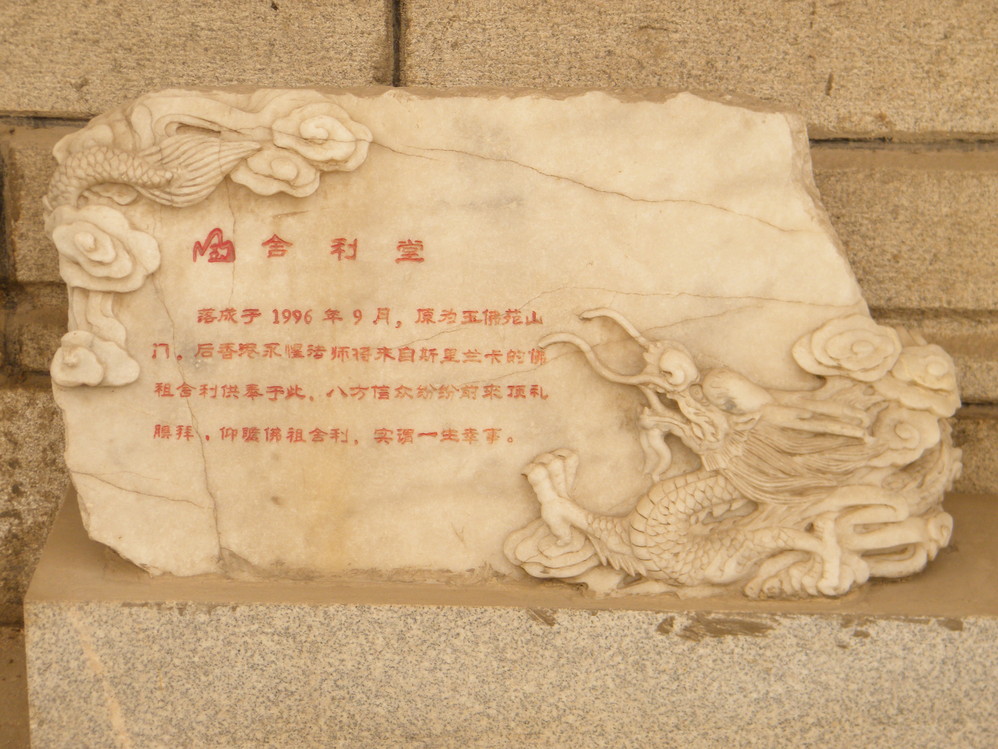 舍利堂
落成于1996年9月，原为玉佛苑山
门。后香港永惺法师将来自斯里兰卡的佛
祖舍利供奉于此，八方信众纷纷前来顶礼
膜拜，仰瞻佛祖舍利，实谓一生幸事。